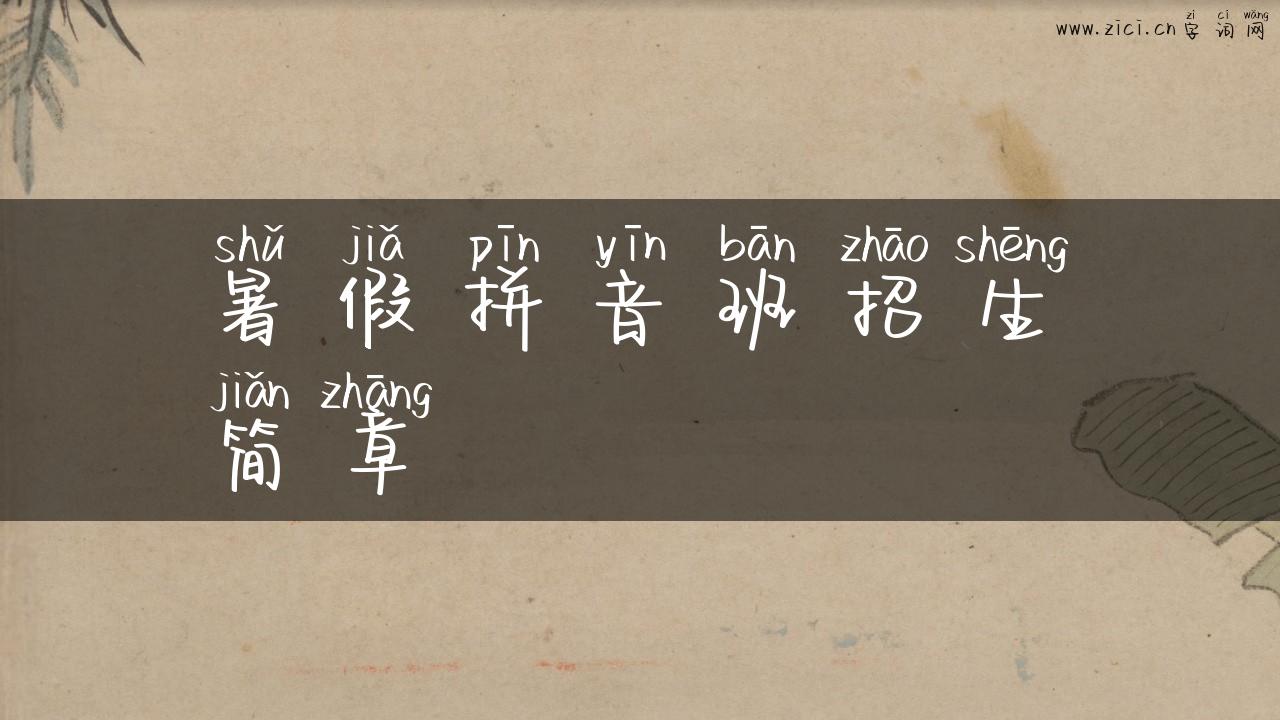 zì cí wǎng
www.zici.cn 字词网
shǔ jiǎ pīn yīn bān zhāo shēng
暑假拼音班招生
jiǎn zhāng
简章